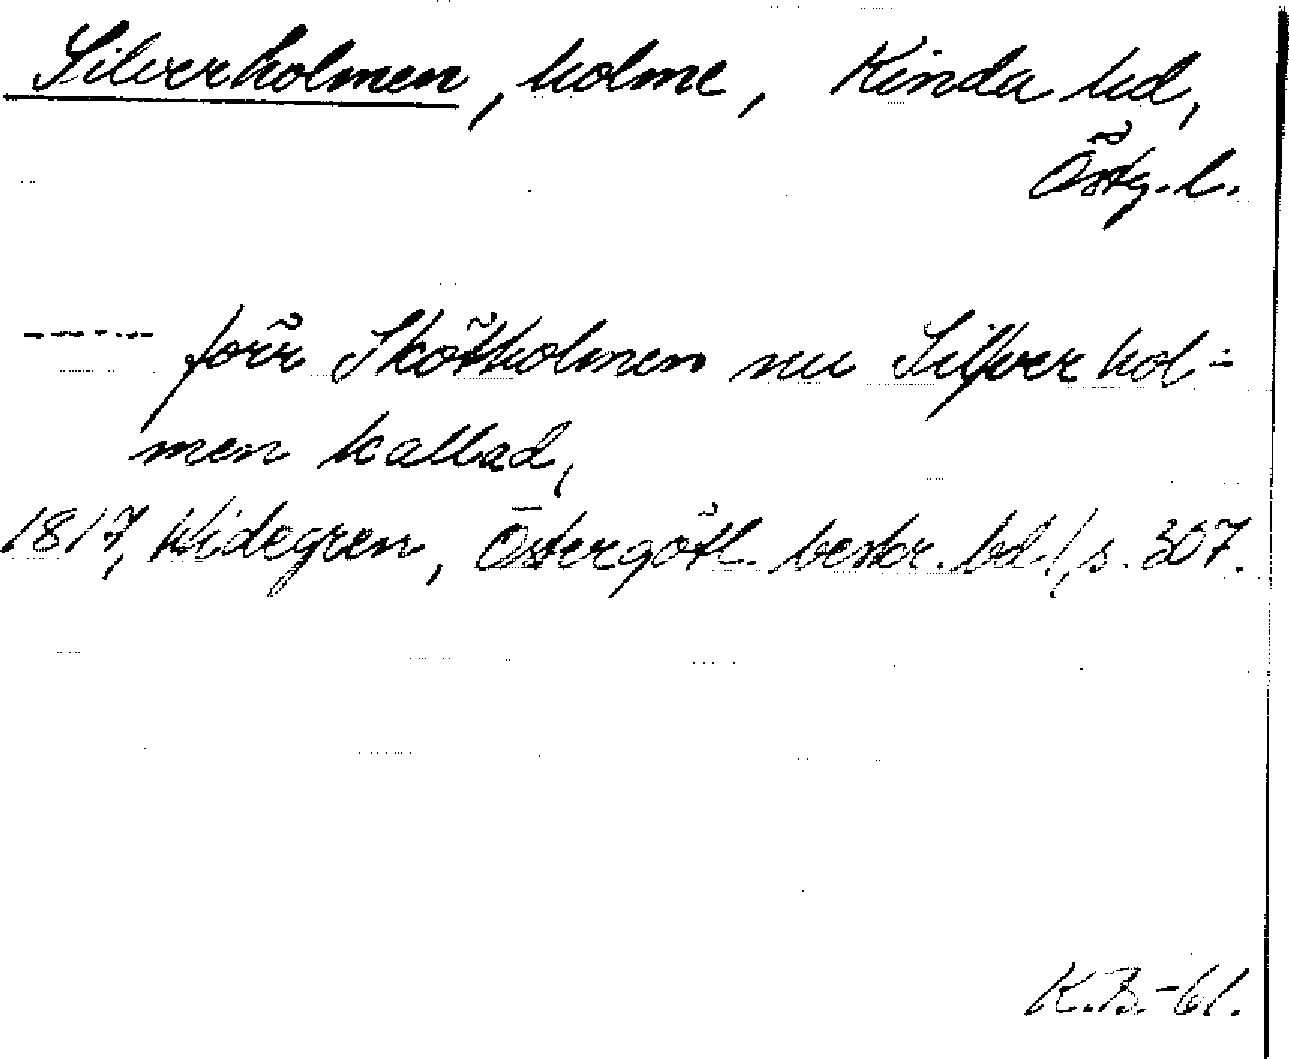 Silverholmen, holme, Kinda hd,
Östg.l.
----- förr Skötholmen nu Silfverhol-
men kallad,
1817, Widegren, Östergötl. beskr. bd 1, s. 307.
K.B.-61.